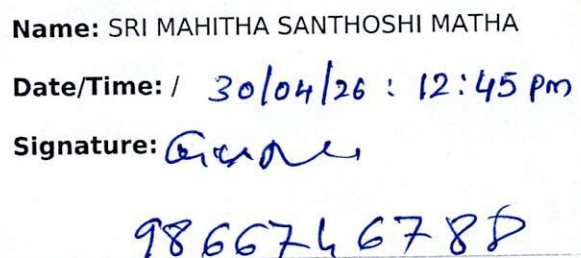 Name: SRI MAHITHA SANTHOSHI MATHA
Date/Time: / 30/04/26 : 12:45 pm
Signature:
9866746788